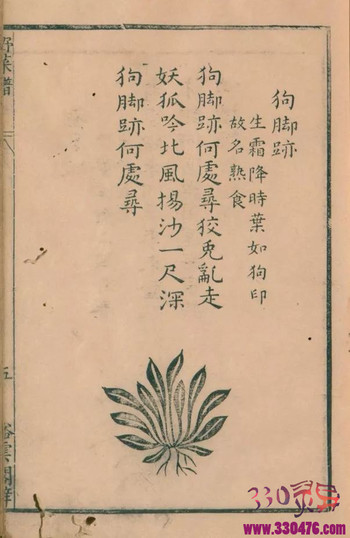 狗脚跡
生霜降時葉如狗印
故名熟食
狗脚跡何處尋狡兎亂走
妖狐吟北風揚沙一尺深
狗脚跡何處尋
野菜譜
五
330
www.330476.com